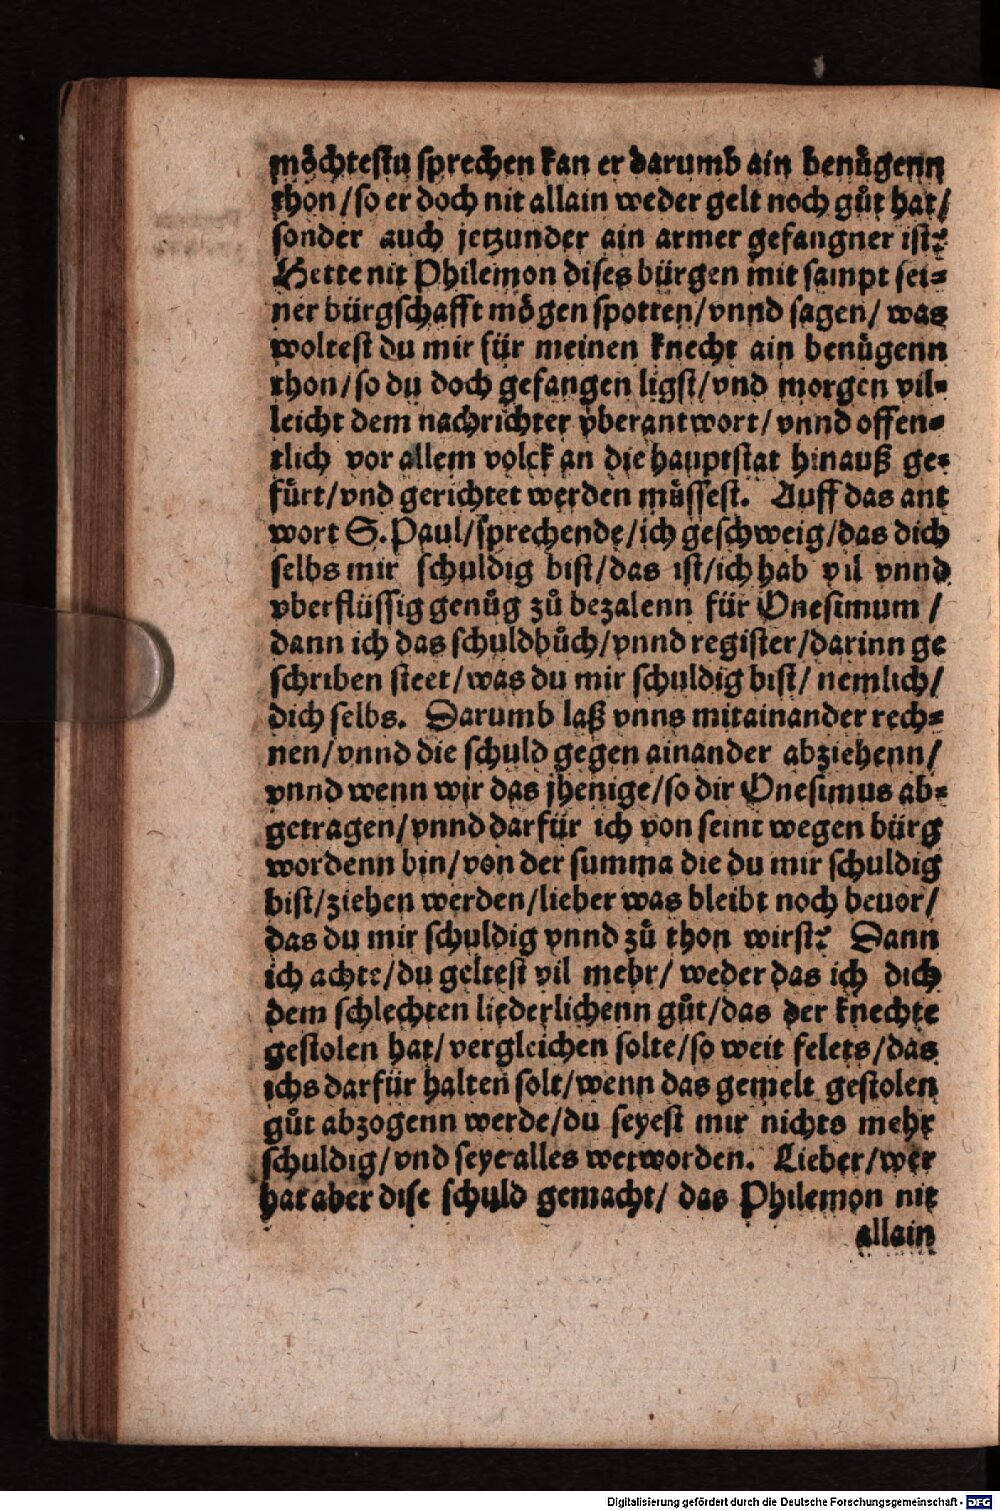 möchtestu sprechen kan er darumb ain benuͤgenn
thon/so er doch nit allain weder gelt noch guͦt hat/
sonder auch jetzunder ain armer gefangner ist?
Hette nit Philemon dises bürgen mit sampt sei-
ner bürgschafft mögen spotten/vnnd sagen/ was
woltest du mir für meinen knecht ain benuͤgenn
thon/so du doch gefangen ligst/vnd morgen vil-
leicht dem nachrichter vberantwort/vnnd offen-
tlich vor allem volck an die hauptstat hinauß ge-
fuͤrt/vnd gerichtet werden muͤssest. Auff das ant
wort S.Paul/sprechende/ich geschweig/das dich
selbs mir schuldig bist/das ist/ich hab vil vnnd
vberflüssig genuͦg zuͦ bezalenn für Onesimum /
dann ich das schuldbuͦch/vnnd register/darinn ge
schriben steet/was du mir schuldig bist/ nemlich/
dich selbs. Darumb laß vnns mitainander rech-
nen/vnnd die schuld gegen ainander abziehenn/
vnnd wenn wir das jhenige/so dir Onesimus ab-
getragen/vnnd darfür ich von seint wegen bürg
wordenn bin/von der summa die du mir schuldig
bist/ziehen werden/lieber was bleibt noch beuor/
das du mir schuldig vnnd zuͦ thon wirst? Dann
ich achte/du geltest vil mehr/ weder das ich dich
dem schlechten liederlichenn guͦt/das der knechte
gestolen hat/vergleichen solte/so weit felets/das
ichs darfür halten solt/wenn das gemelt gestolen
guͦt abzogenn werde/du seyest mir nichts mehr
schuldig/vnd seye alles wetworden. Lieber/wer
hat aber dise schuld gemacht/ das Philemon nit
allain
Digitalisierung gefördert durch die Deutsche Forschungsgemeinschaft - DFG